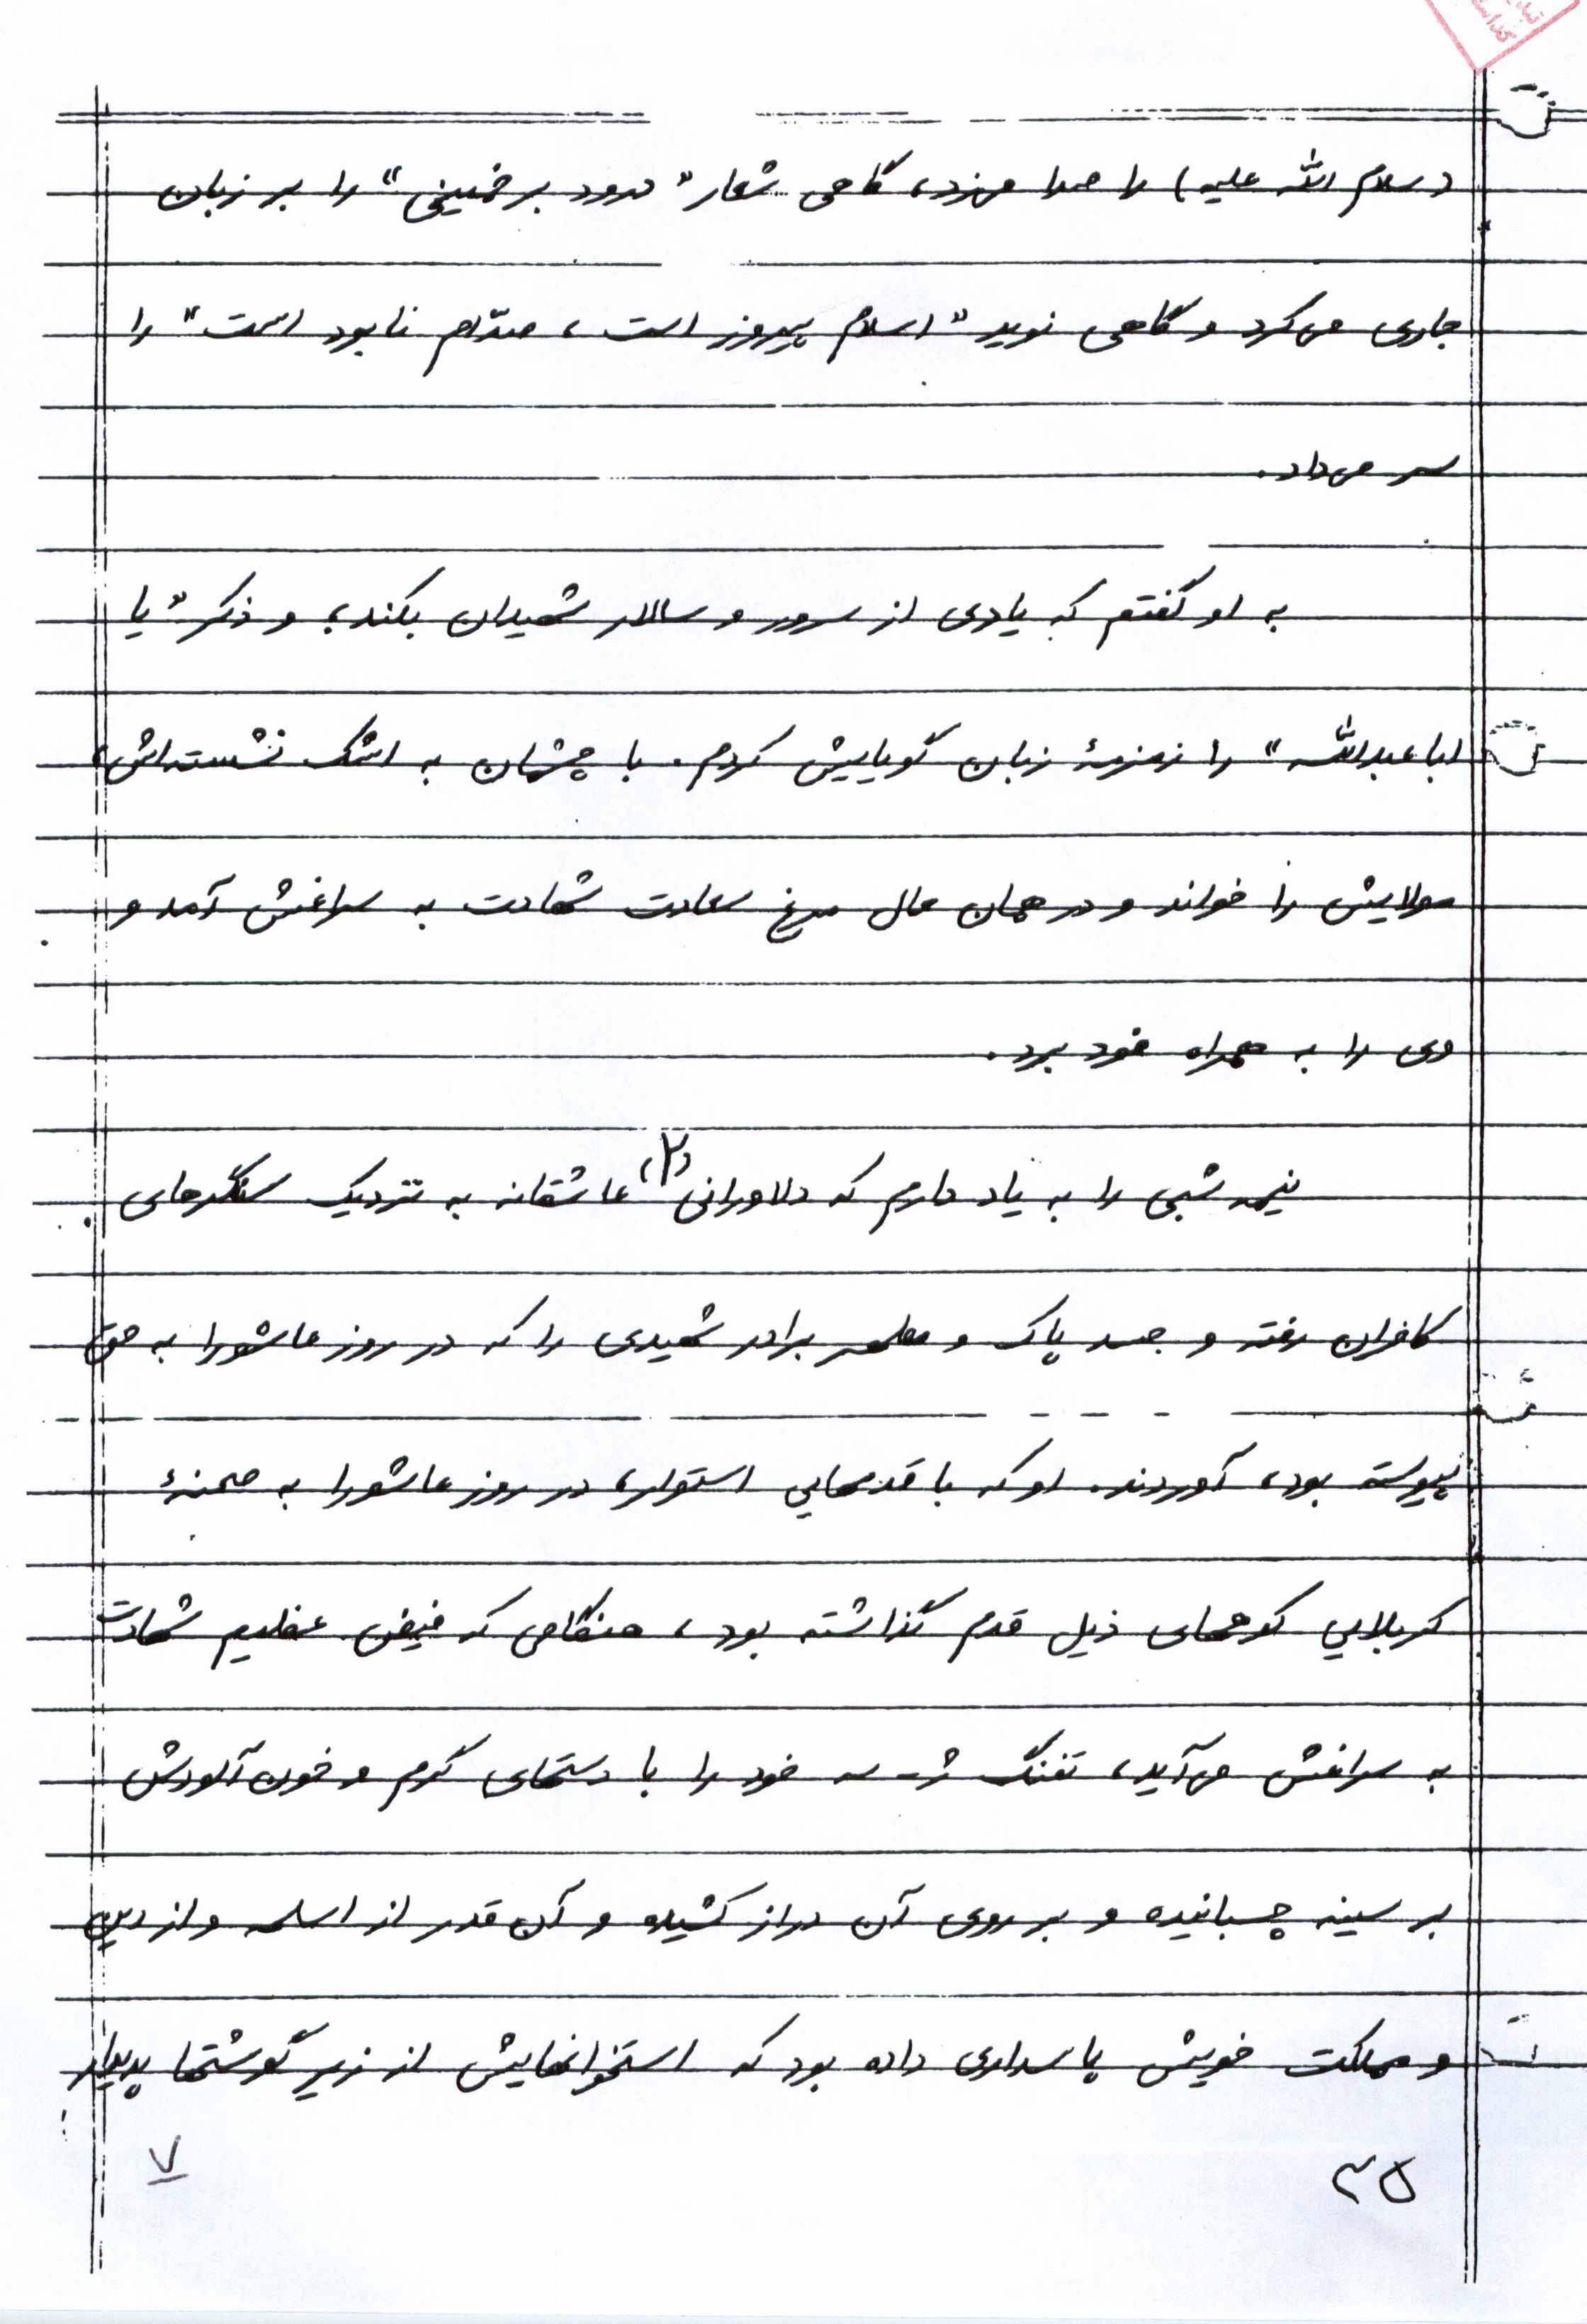 (سلام الله علیه) را صدا می‌زد، گاهی شعار "درود بر خمینی" را بر زبان
جاری می‌کرد و گاهی نوید "اسلام پیروز است، صدّام نابود است" را
سر می‌داد.
به او گفتم که یادی از سرور و سالار شهیدان بکند، و ذکر "یا
اباعبدالله" را زمزمهٔ زبان گویایش کردم. با چشمان به اشک نشسته‌اش،
مولایش را خواند و در همان حال مرغ سعادت شهادت به سراغش آمد و
وی را به همراه خود برد.
نیمه شبی را به یاد دارم که دلاورانی (۲) عاشقانه به نزدیک سنگرهای
کافران رفته و جسد پاک و مطهر برادر شهیدی را که در روز عاشورا به حق
پیوسته بود، آوردند. او که با قدمهایی استوار، در روز عاشورا به صحنهٔ
کربلایی کوههای ذیل قدم گذاشته بود، هنگامی که فیض عظیم شهادت
به سراغش می‌آید، تفنگ ژ-سه خود را با دستهای گرم و خون‌آلودش
بر سینه چسبانیده و بر روی آن دراز کشیده و آن قدر از اسلحه و از دین
و مملکت خویش پاسداری داده بود که استخوانهایش از زیر گوشتها پدیدار
۳۵
۷